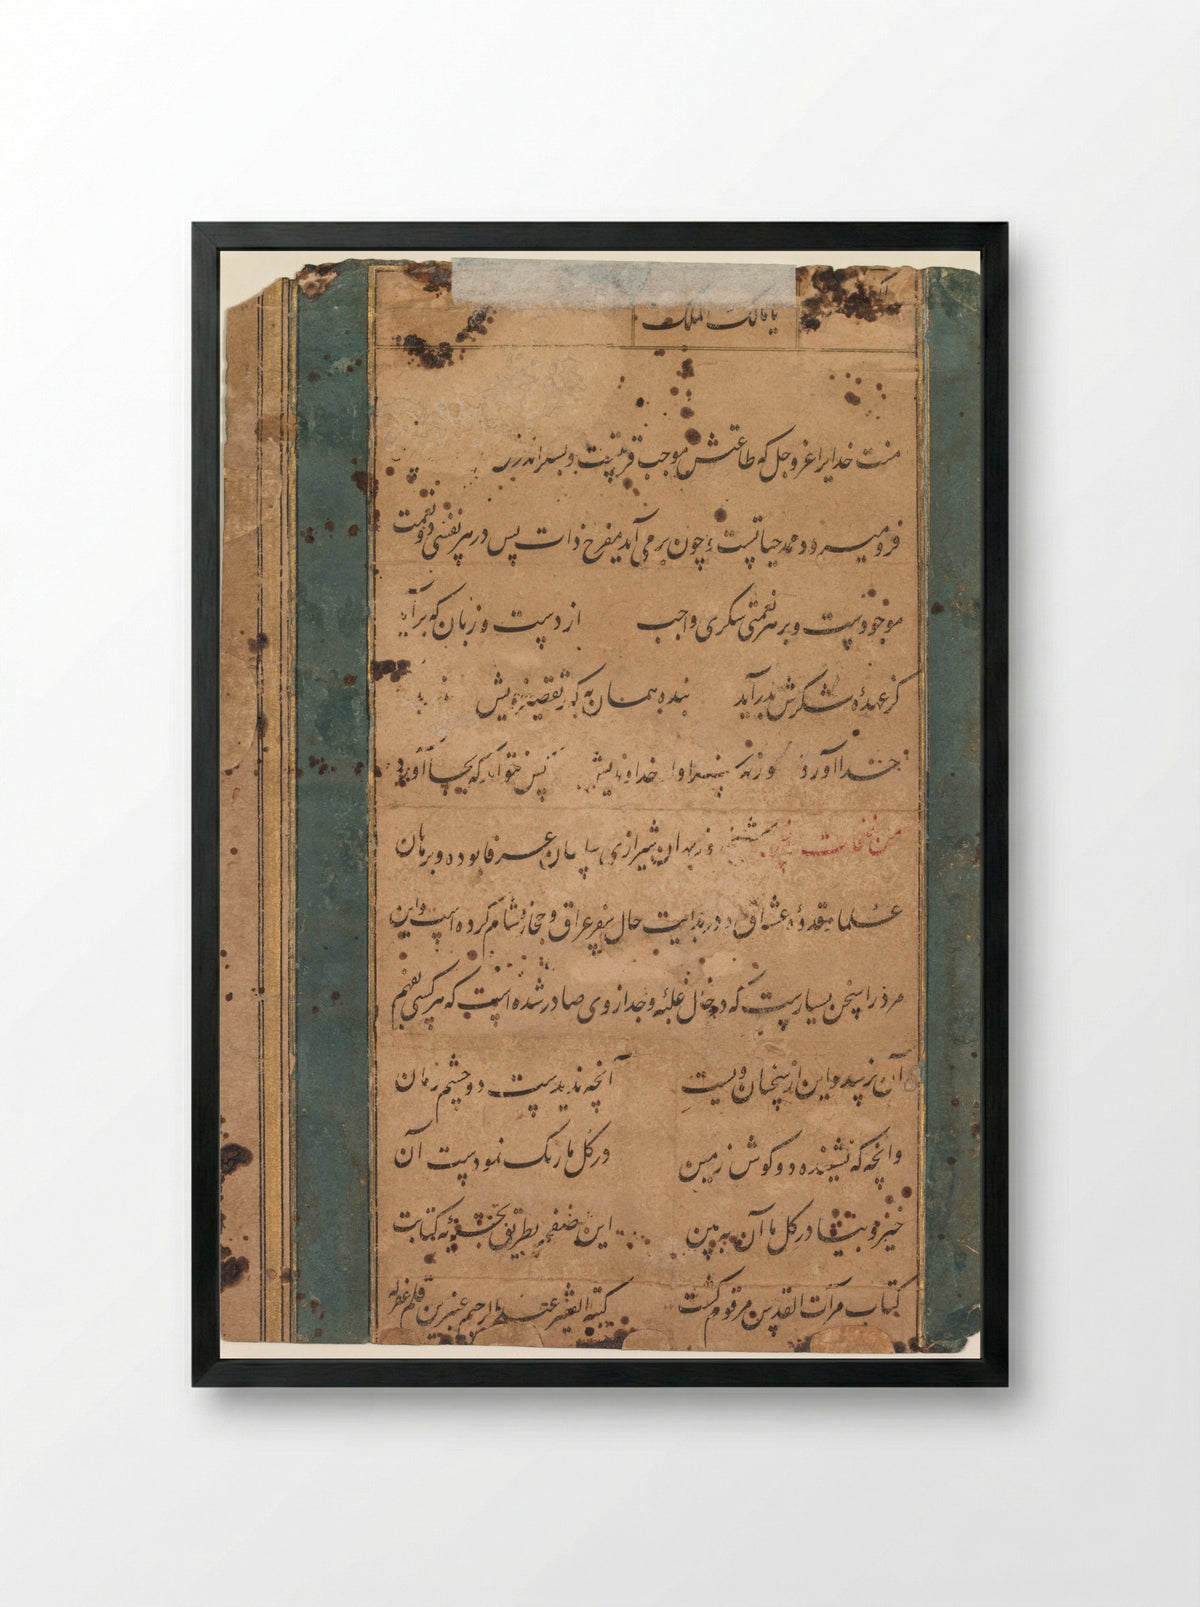 یا مالک الملک
منت خدایرا عز و جل که طاعتش موجب قربتست و بشکر اندرش
فرو میرود ممد حیاتست و چون بر می آید مفرح ذات پس در هر نفسی دو نعمت
موجودست و بر هر نعمتی شکری واجب از دست و زبان که برآید
کز عهده شکرش بدرآید بنده همان به که ز تقصیر خویش
خدا آورد ورنه سزاوار خداوندیش کس نتواند که بجا آورد
من شیرازی عرفا بوده و برهان
علما مقدوه عشاق در بدایت حال سفر عراق و حجاز و شام کرده است و این
مرد را سخن بسیارست که در حال غلبه و وجد از وی صادر شده است که هر کسی بفهم
آن نرسد و این از سخنان ویست آنچه ندیدست دو چشم زمان
وانچه که نشنیده دو کوش زمین در کل ما رنک نمودست آن
خیز و بیا در کل ما آن ببین این بطریق به کتابت
کتاب مرآت القدس مرقوم کشت کتبه الفقیر عنبرین قلم غفرله